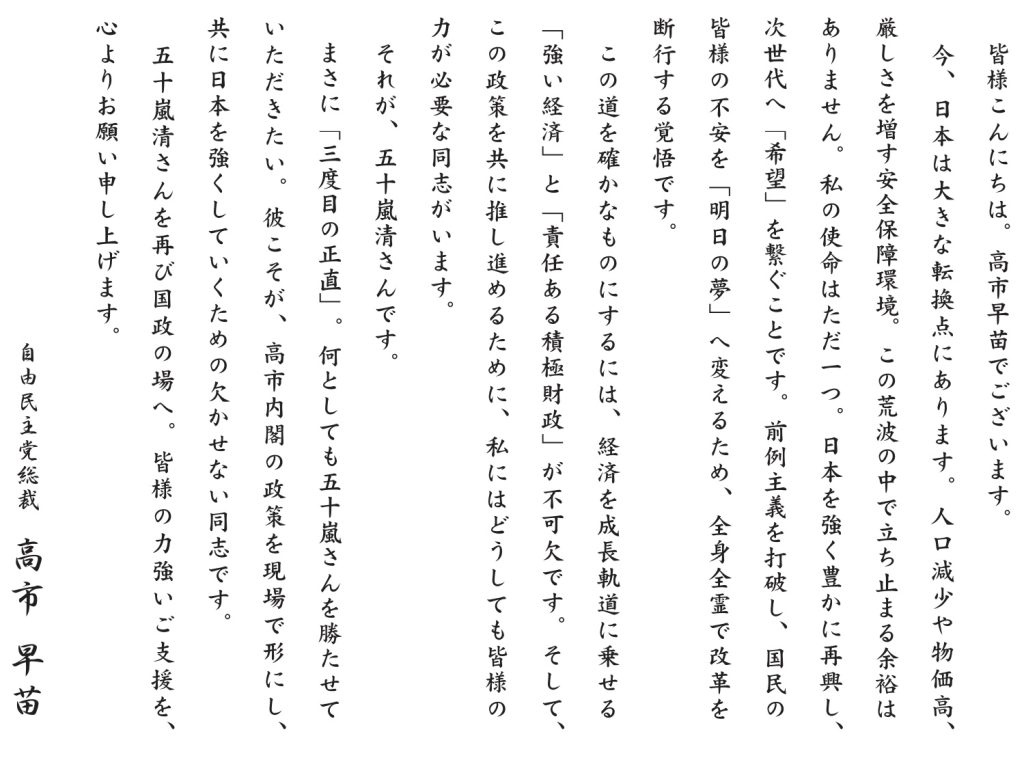 皆様こんにちは。高市早苗でございます。
今、日本は大きな転換点にあります。人口減少や物価高、
厳しさを増す安全保障環境。この荒波の中で立ち止まる余裕は
ありません。私の使命はただ一つ。日本を強く豊かに再興し、
次世代へ「希望」を繋ぐことです。前例主義を打破し、国民の
皆様の不安を「明日の夢」へ変えるため、全身全霊で改革を
断行する覚悟です。
この道を確かなものにするには、経済を成長軌道に乗せる
「強い経済」と「責任ある積極財政」が不可欠です。そして、
この政策を共に推し進めるために、私にはどうしても皆様の
力が必要な同志がいます。
それが、五十嵐清さんです。
まさに「三度目の正直」。何としても五十嵐さんを勝たせて
いただきたい。彼こそが、高市内閣の政策を現場で形にし、
共に日本を強くしていくための欠かせない同志です。
五十嵐清さんを再び国政の場へ。皆様の力強いご支援を、
心よりお願い申し上げます。
自由民主党総裁 高市 早苗